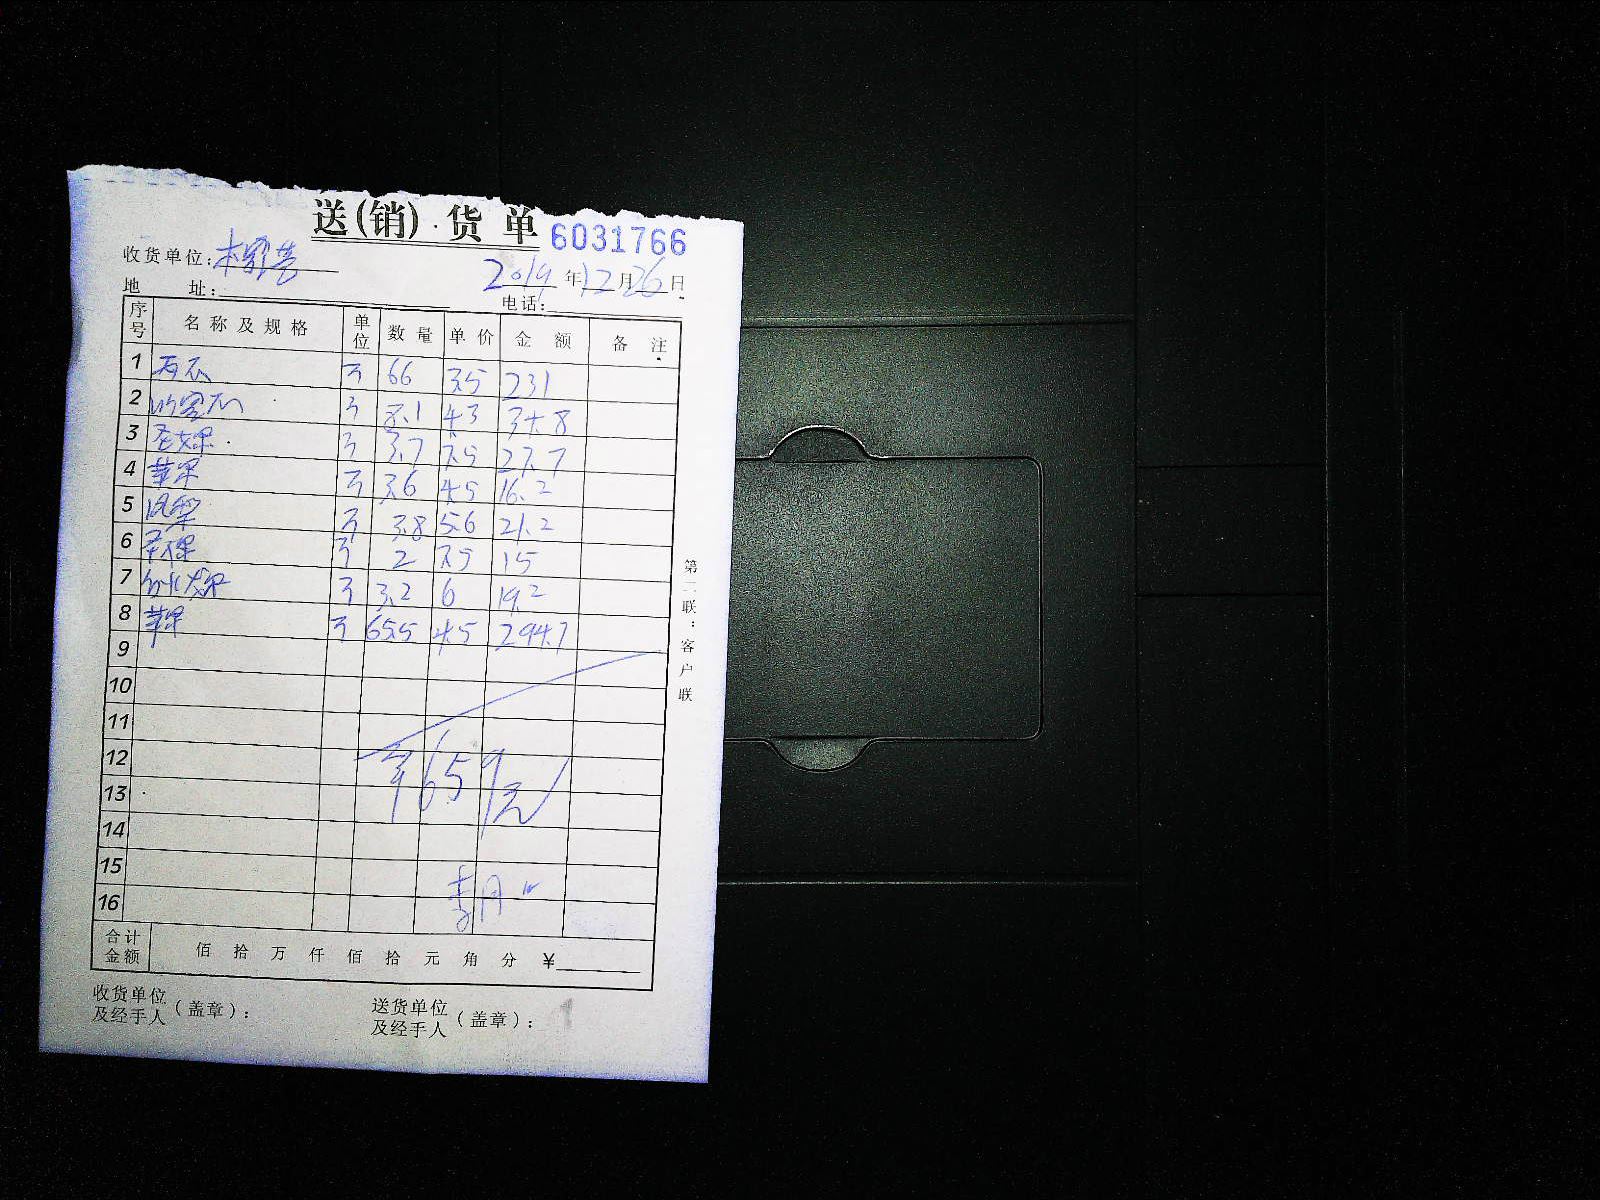 送(销)·货单 6031766
收货单位:
2019 年 12 月 26 日
地 址:
电话:
序号 名称及规格 单位 数量 单价 金额 备注
1 斤 66 3.5 231
2 斤 8.1 4.3 34.8
3 圣女果 斤 3.7 7.5 27.7
4 苹果 斤 3.6 4.5 16.2
5 凤梨 斤 3.8 5.6 21.2
6 斤 2 7.5 15
7 斤 3.2 6 19.2
8 苹果 斤 65.5 4.5 294.7
9
10
11
12
13
14
15
16
659元
合计金额 佰 拾 万 仟 佰 拾 元 角 分 ¥
收货单位及经手人(盖章):
送货单位及经手人(盖章):
第二联:客户联